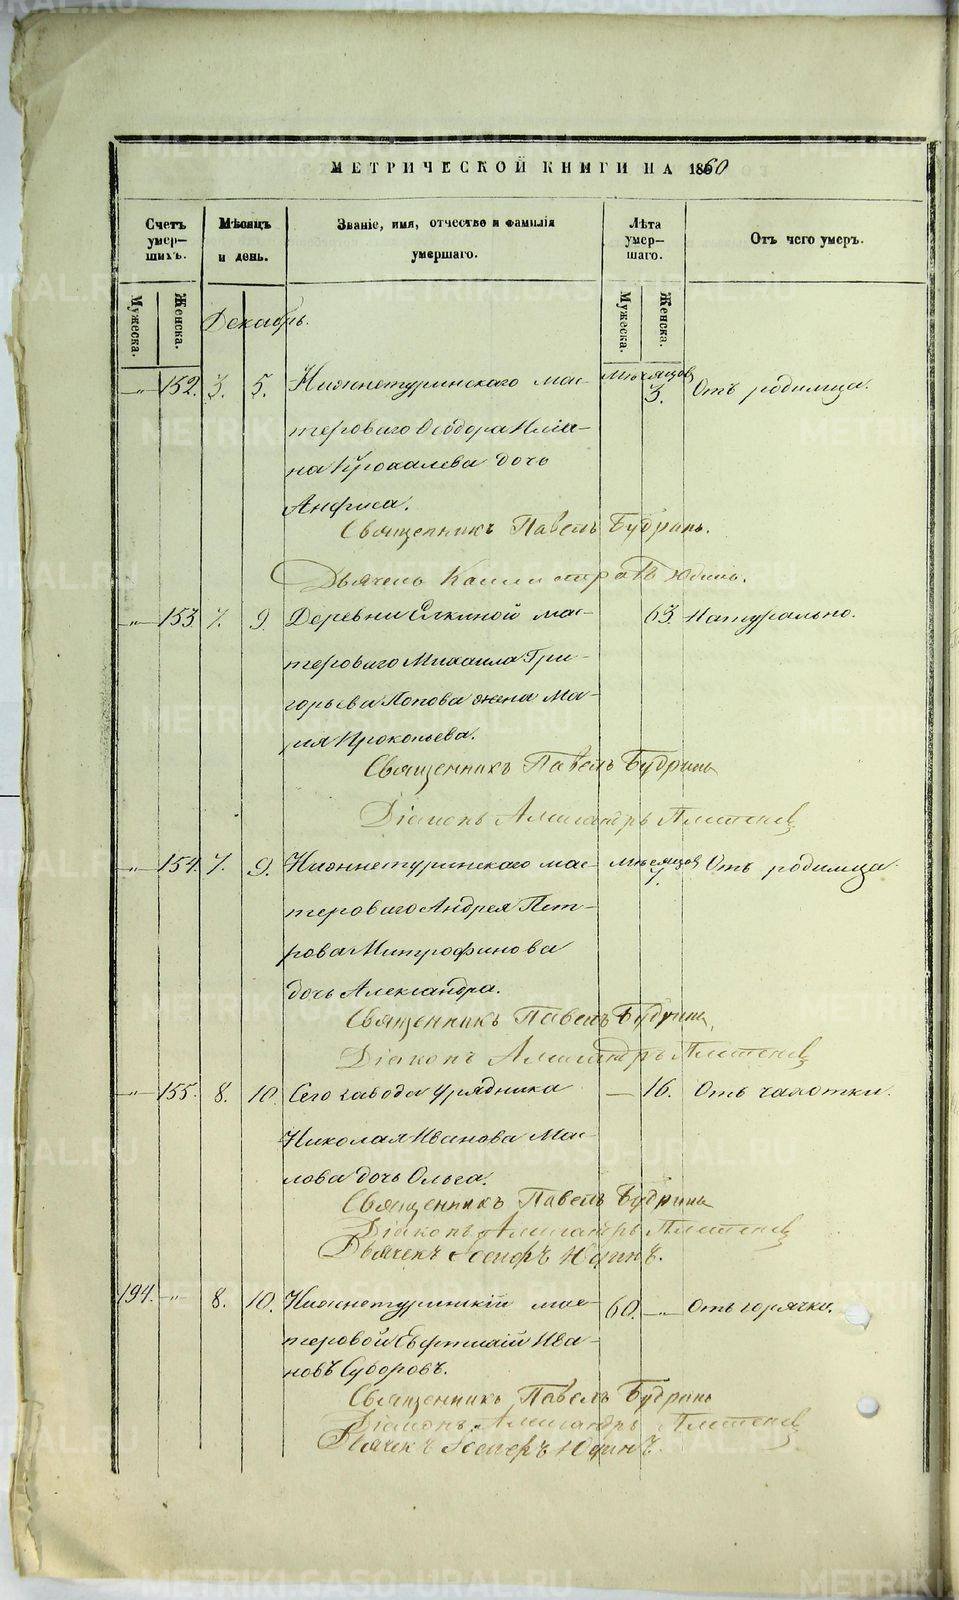 МЕТРИЧЕСКОЙ КНИГИ НА 1860
Счетъ умер-шихъ.
Мѣсяцъ и день.
Званіе, имя, отчество и фамилія умершаго.
Лѣта умер-шаго.
Отъ чего умеръ.
Мужеска.
Женска.
Мужеска.
Женска.
Декабрь.
—"— 152. 3. 5. Нижнетуринскаго мас- Мѣсяцовъ 3. Отъ родимца.
тероваго Ѳеодора
дочь
Анфиса.
Священникъ Павелъ Будринъ.
Дьячекъ Каллистратъ Юдинъ.
—"— 153. 7. 9. Деревни Елкиной мас- 63. Натурально.
тероваго Михаила Гри-
горьева Попова жена Ма-
рия Прокопьева.
Священникъ Павелъ Будринъ
Діаконъ Александръ
—"— 154. 7. 9. Нижнетуринскаго мас- Мѣсяцовъ 7. Отъ родимца.
тероваго Андрея Пет-
рова Митрофанова
дочь Александра.
Священникъ Павелъ Будринъ
Діаконъ Александръ
—"— 155. 8. 10. Сего завода урядника — 16. Отъ чахотки.
Николая Иванова Мас-
лова дочь Ольга.
Священникъ Павелъ Будринъ
Діаконъ Александръ
Дьячекъ Іосифъ Юдинъ.
194. —"— 8. 10. Нижнетуринскій мас- 60. —"— Отъ горячки.
теровой Ефтифій Ива-
новъ Суворовъ.
Священникъ Павелъ Будринъ
Діаконъ Александръ
Дьячекъ Іосифъ Юдинъ.
METRIKI.GASO-URAL.RU